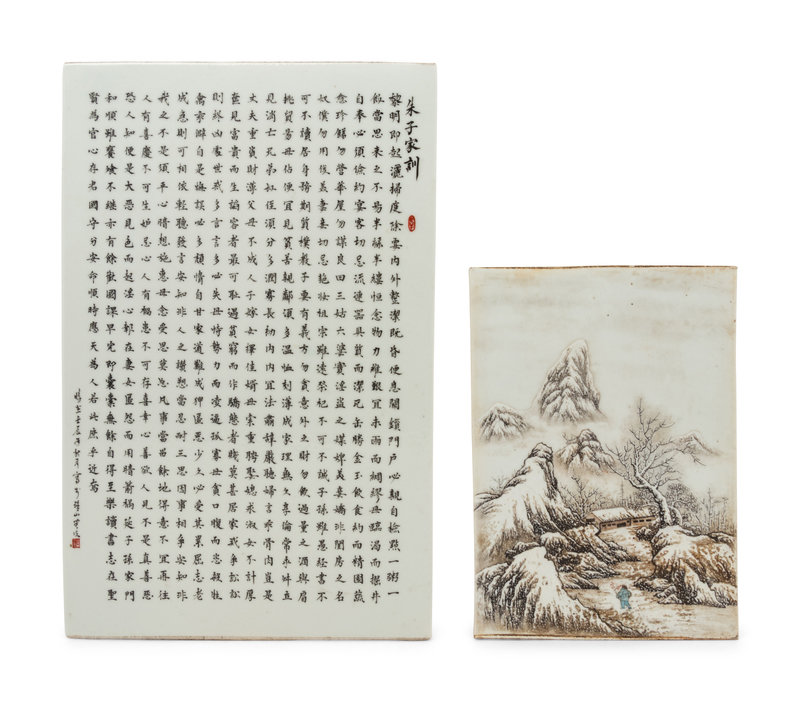 朱子家訓
黎明即起灑掃庭除要內外整潔既昏便息關鎖門戶必親自檢點一粥一
飯當思來之不易半絲半縷恒念物力維艱宜未雨而綢繆毋臨渴而掘井
自奉必須儉約宴客切忌流連器具質而潔瓦缶勝金玉飲食約而精園蔬
愈珍饈勿營華屋勿謀良田三姑六婆實淫盜之媒婢美妾嬌非閨房之名
奴僕勿用俊美妻妾切忌艷妝祖宗雖遠祭祀不可不誠子孫雖愚經書不
可不讀居身務期質樸教子要有義方勿貪意外之財勿飲過量之酒與肩
挑貿易毋佔便宜見貧苦親鄰須多溫恤刻薄成家理無久享倫常乖舛立
見消亡兄弟叔侄須分多潤寡長幼內外宜法肅辭嚴聽婦言乖骨肉豈是
丈夫重資財薄父母不成人子嫁女擇佳婿毋索重聘娶媳求淑女不計厚
奩見富貴而生諂容者最可恥遇貧窮而作驕態者賤莫甚居家戒爭訟訟
則終凶處世戒多言言多必失毋恃勢力而凌逼孤寡毋貪口腹而恣殺牲
禽乖僻自是悔誤必多頹惰自甘家道難成狎匿惡少久必受其累屈志老
成急則可相依輕聽發言安知非人之譖愬當忍耐三思因事相爭安知非
我之不是須平心暗想施惠毋念受恩莫忘凡事當留餘地得意不宜再往
人有喜慶不可生妒忌心人有禍患不可存喜幸心善欲人見不是真善惡
恐人知便是大惡見色而起淫心報在妻女匿怨而用暗箭禍延子孫家門
和順雖饔飧不繼亦有餘歡國課早完即囊橐無餘自得至樂讀書志在聖
賢為官心存君國守分安命順時應天為人若此庶乎近焉
壬辰年秋月書于珠山